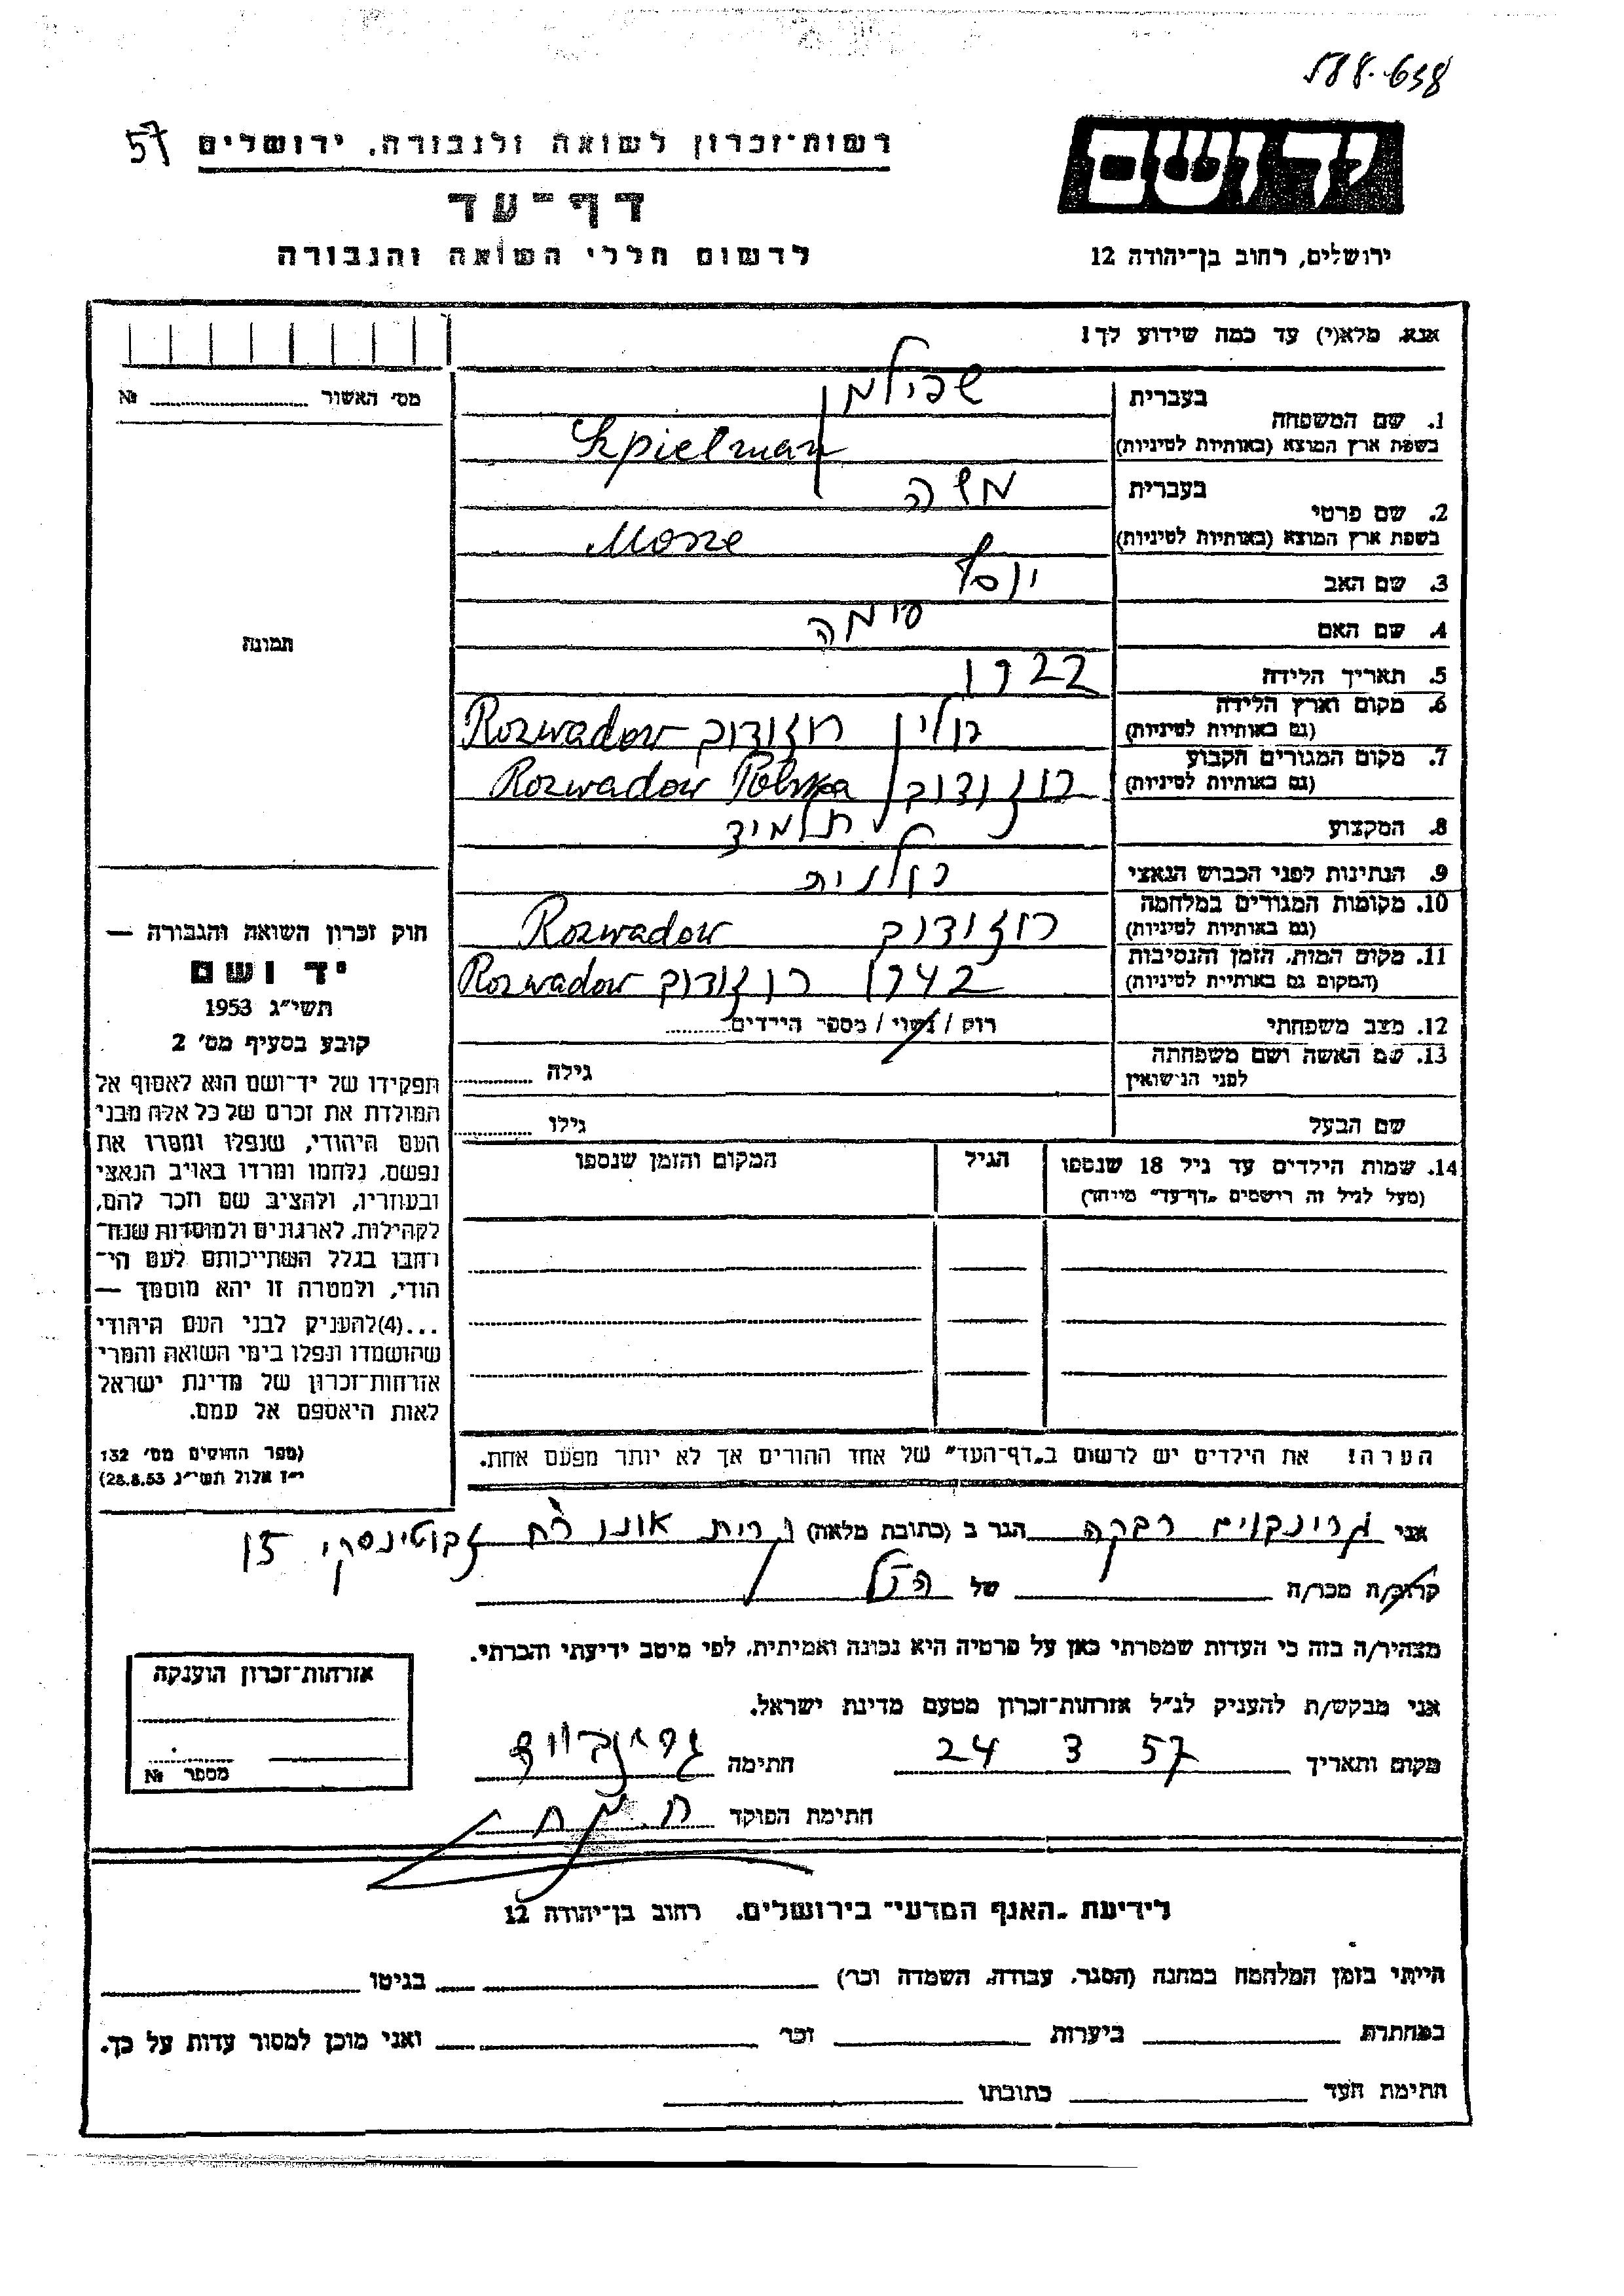 588-638
57
רשות־זכרון לשואה ולגבורה, ירושלים
יד ושם
דף־עד
לרשום חללי השואה והגבורה
ירושלים, רחוב בן־יהודה 12
אנא, מלא(י) עד כמה שידוע לך!
מס׳ האשור № 
1. שם המשפחה
בעברית שפילמן
בשפת ארץ המוצא (באותיות לטיניות) Szpielman
2. שם פרטי
בעברית משה
בשפת ארץ המוצא (באותיות לטיניות) Mosze
3. שם האב יוסף
4. שם האם סימה
תמונה
5. תאריך הלידה 1922
6. מקום וארץ הלידה (גם באותיות לטיניות) פולין רוזודוב Rozwadow
7. מקום המגורים הקבוע (גם באותיות לטיניות) רוזודוב Rozwadow Polska
8. המקצוע תלמיד
9. הנתינות לפני הכבוש הנאצי פולנית
10. מקומות המגורים במלחמה (גם באותיות לטיניות) רוזודוב Rozwadow
11. מקום המות, הזמן והנסיבות (המקום גם באותיות לטיניות) 1942 רוזודוב Rozwadow
12. מצב משפחתי רווק / נשוי / מספר הילדים
13. שם האשה ושם משפחתה לפני הנישואין גילה
שם הבעל גילו
14. שמות הילדים עד גיל 18 שנספו הגיל המקום והזמן שנספו
(מעל לגיל זה רושמים „דף־עד" מיוחד)
חוק זכרון השואה והגבורה —
יד ושם
תשי״ג 1953
קובע בסעיף מס׳ 2
תפקידו של יד־ושם הוא לאסוף אל
המולדת את זכרם של כל אלה מבני
העם היהודי, שנפלו ומסרו את
נפשם, נלחמו ומרדו באויב הנאצי
ובעוזריו, ולהציב שם וזכר להם,
לקהילות, לארגונים ולמוסדות שנח־
רבו בגלל השתייכותם לעם הי־
הודי, ולמטרה זו יהא מוסמך —
...(4)להעניק לבני העם היהודי
שהושמדו ונפלו בימי השואה והמרי
אזרחות־זכרון של מדינת ישראל
לאות היאספם אל עמם.
(ספר החוקים מס׳ 132
י״ז אלול תשי״ג 28.8.53)
הערה! את הילדים יש לרשום ב„דף־העד" של אחד ההורים אך לא יותר מפעם אחת.
אני גרינקוים רבקה הגר ב (כתובת מלאה) קרית אונו רח ז׳בוטינסקי
קרוב/ה מכר/ה של הנ״ל
מצהיר/ה בזה כי העדות שמסרתי כאן על פרטיה היא נכונה ואמיתית, לפי מיטב ידיעתי והכרתי.
אני מבקש/ת להעניק לנ״ל אזרחות־זכרון מטעם מדינת ישראל.
מקום ותאריך 24 3 57 חתימה
חתימת הפוקד
אזרחות־זכרון הוענקה
מספר №
לידיעת „האגף המדעי" בירושלים, רחוב בן־יהודה 12
הייתי בזמן המלחמה במחנה (הסגר, עבודה, השמדה וכו׳) בגיטו
במחתרת ביערות וכו׳ ואני מוכן למסור עדות על כך.
חתימת העד כתובתו